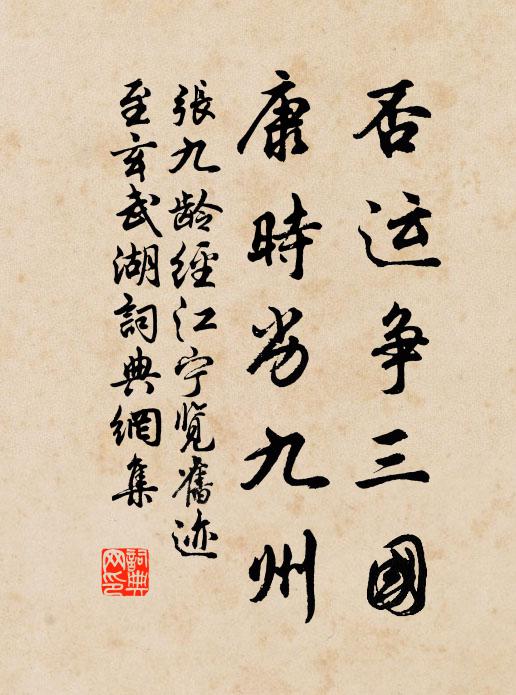 否运争三國
康時劣九州
張九龄經江宁览舊迹
至玄武湖詞典網集
詞典网印